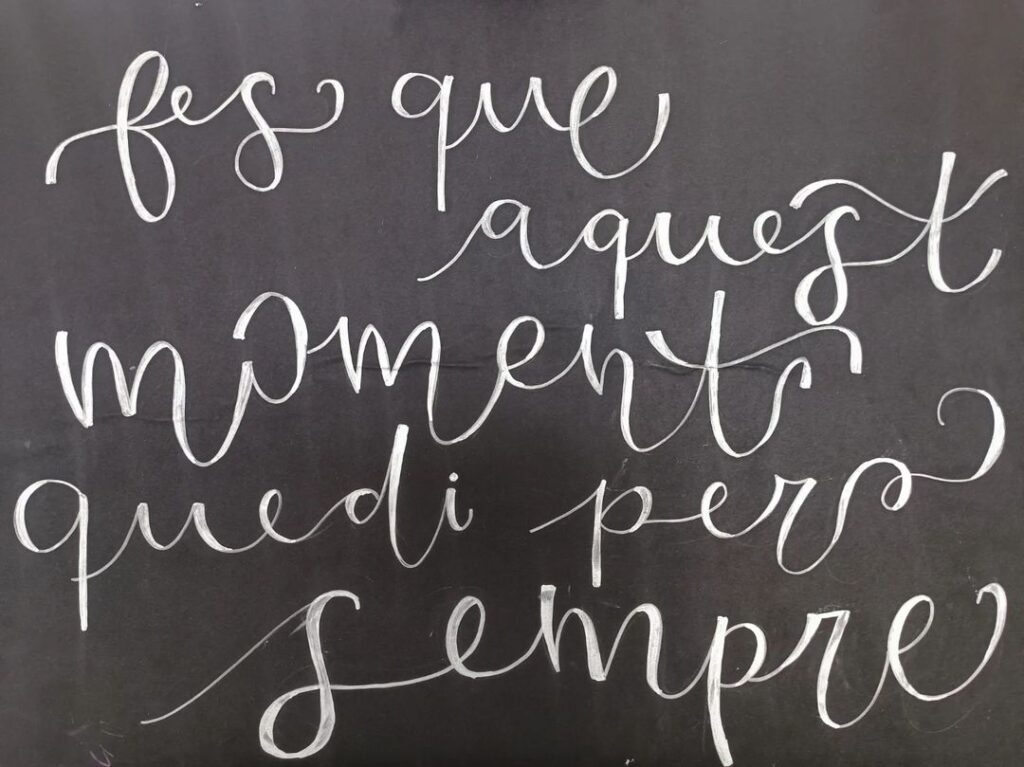 fes que
aquest
moment
quedi per
sempre